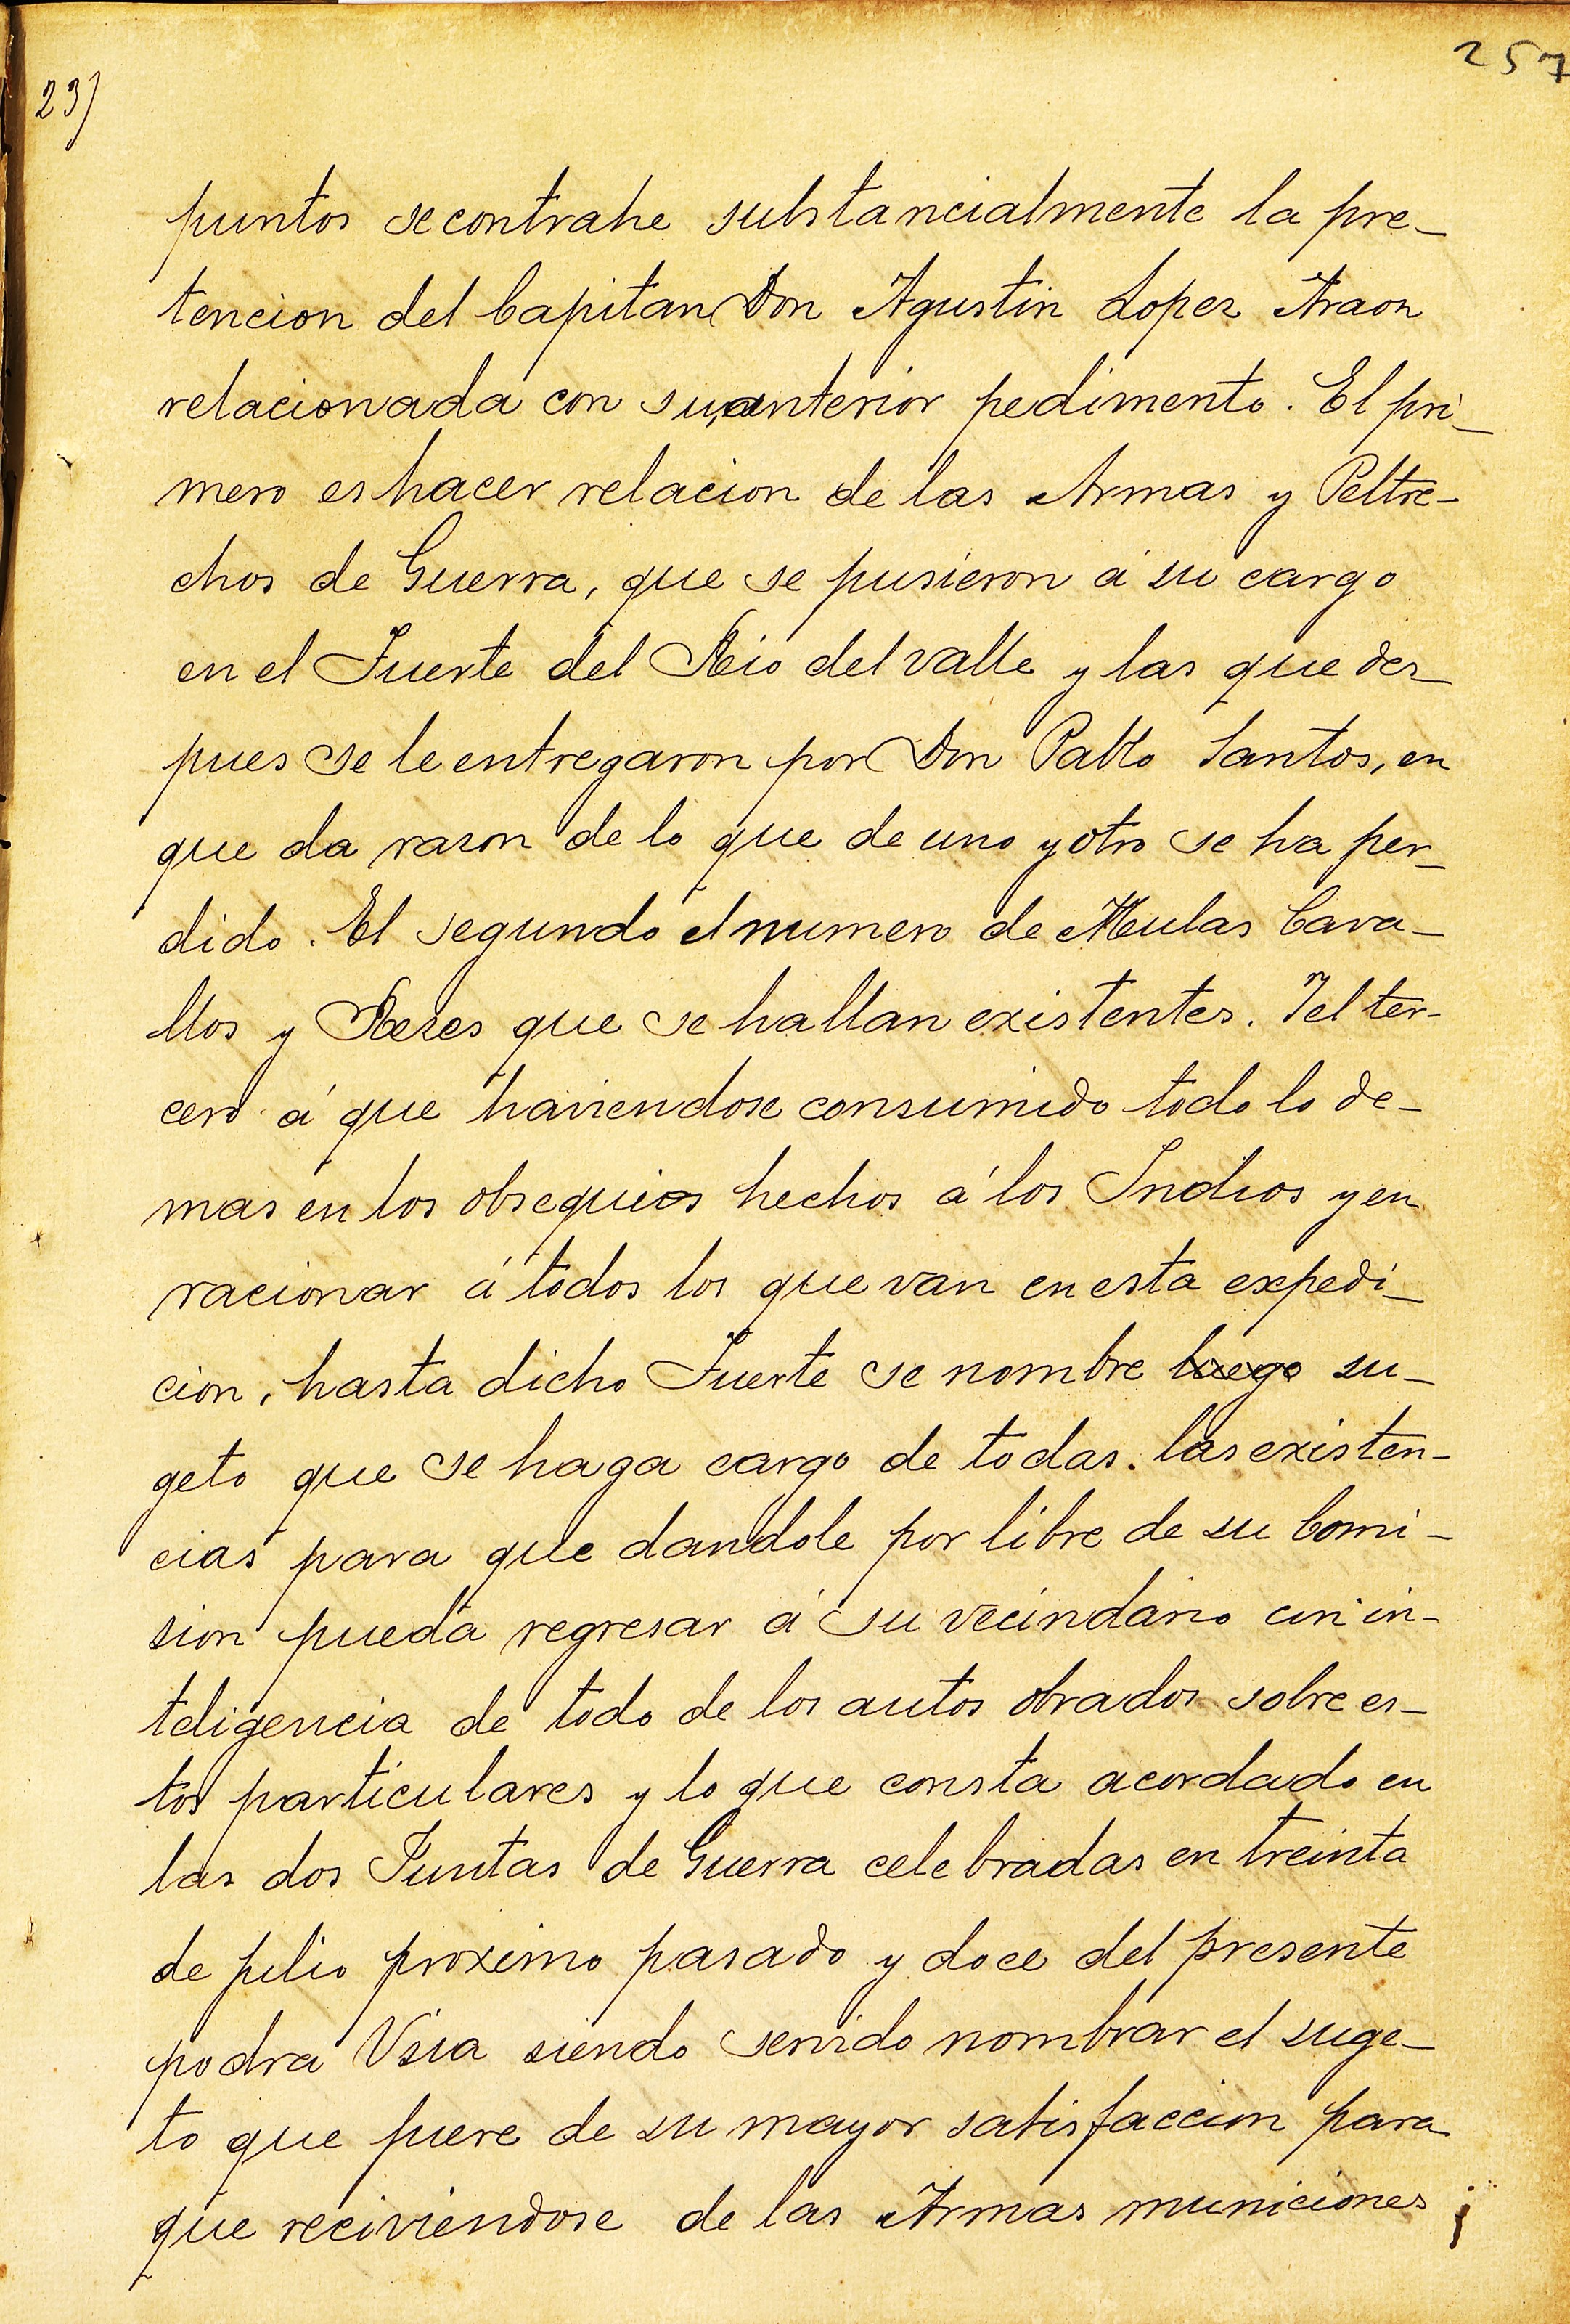 257
23)
puntos se contrahe substancialmente la pre_
tencion del Capitan Don Agustin Lopez Araon
relacionada con su anterior pedimento. El pri_
mero es hacer relacion de las Armas y Peltre_
chos de Guerra, que se pusieron á su cargo
en el Fuerte del Rio del valle y las que des_
pues se le entregaron por Don Pablo Santos, en
que da rason de lo que de uno y otro se ha per_
dido. El segundo el numero de Mulas Cava_
llos y Reses que se hallan existentes. Y el ter_
cero á que haviendose consumido todo lo de_
mas en los obsequios hechos á los Indios y en
racionar á todos los que van en esta expedi_
cion, hasta dicho Fuerte se nombre luego su_
geto que se haga cargo de todas. las existen_
cias para que dandole por libre de su Comi_
sion pueda regresar á su vecindario con in_
teligencia de todo de los autos obrados sobre es_
tos particulares y lo que consta acordado en
las dos Juntas de Guerra celebradas en treinta
de julio proximo pasado y doce del presente
podra Vsia siendo servido nombrar el suge_
to que fuere de su mayor satisfaccion para
que reciviendose de las Armas municiones